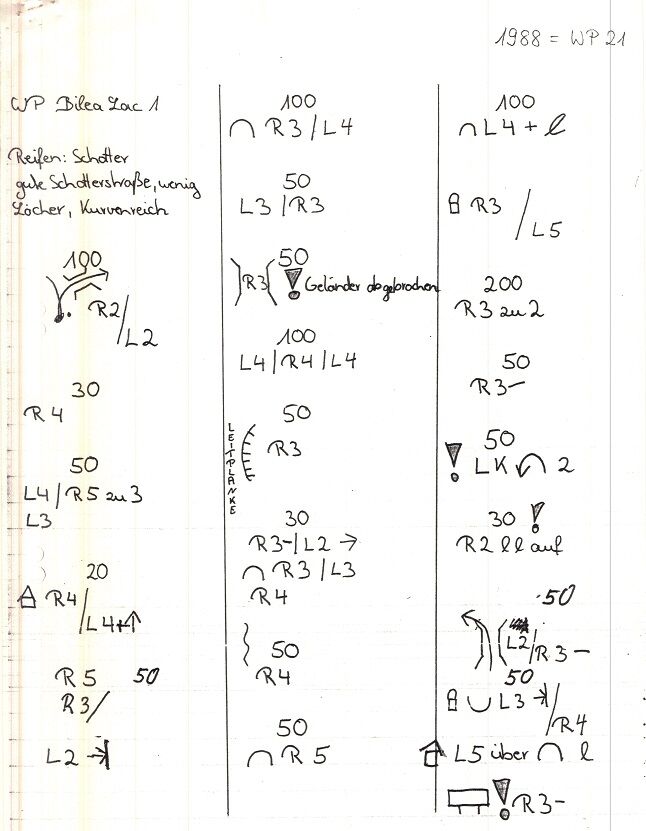 1988 = WP 21
WP Bilea Lac 1
Reifen: Schotter
gute Schotterstraße, wenig
Löcher, Kurvenreich
100
R2/
L2
30
R4
50
L4/R5 zu 3
L3
20
R4/
L4+
R5 50
R3/
L2
100
R3/L4
50
L3/R3
50
R3 ! Geländer abgebrochen
100
L4/R4/L4
50
LEITPLANKE
R3
30
R3-/L2 →
R3/L3
R4
50
R4
50
R5
100
L4 + l
R3/
L5
200
R3 zu 2
50
R3-
50
! LK 2
30 !
R2 ll auf
50
L2/R3-
50
L3 /
R4
L5 über l
! R3-